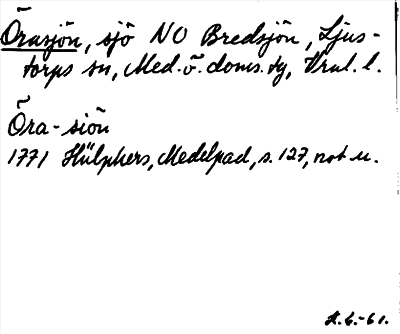 Örasjön, sjö NO Bredsjön, Ljus-
torps sn, Med. ö. doms. tg, Vnl. l.
Öra-siön
1771 Hülphers, Medelpad, s. 127, not u.
H.G.-61.